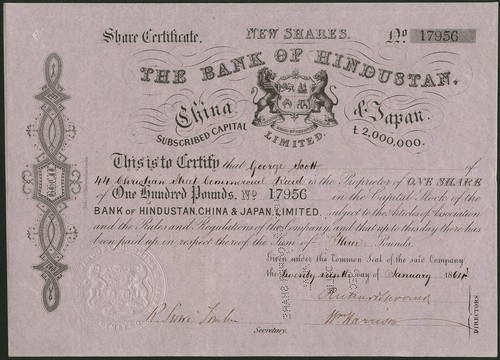 Share Certificate.
NEW SHARES.
No 17956
THE BANK OF HINDUSTAN.
China & Japan.
SUBSCRIBED CAPITAL £2,000,000.
LIMITED.
This is to Certify that George Scott of
44 Christian Street Commercial Road is the Proprietor of ONE SHARE
of One Hundred Pounds, No 17956 in the Capital Stock of the
BANK OF HINDUSTAN, CHINA & JAPAN, LIMITED, subject to the Articles of Association
and the Rules and Regulations of the Company, and that up to this day there has
been paid up in respect thereof the Sum of Pounds.
Given under the Common Seal of the said Company
the twenty ninth day of January
Secretary.
Wm Harrison
DIRECTORS